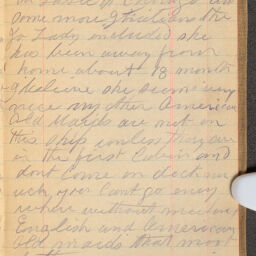 some more
Lady included she
has been away from
home about 18 months
she seems very
nice any other American
Old Maids are not on
this ship unless they are
in the First Cabin and
dont come on deck
you cant go any
where without meeting
English and American
old maids that most